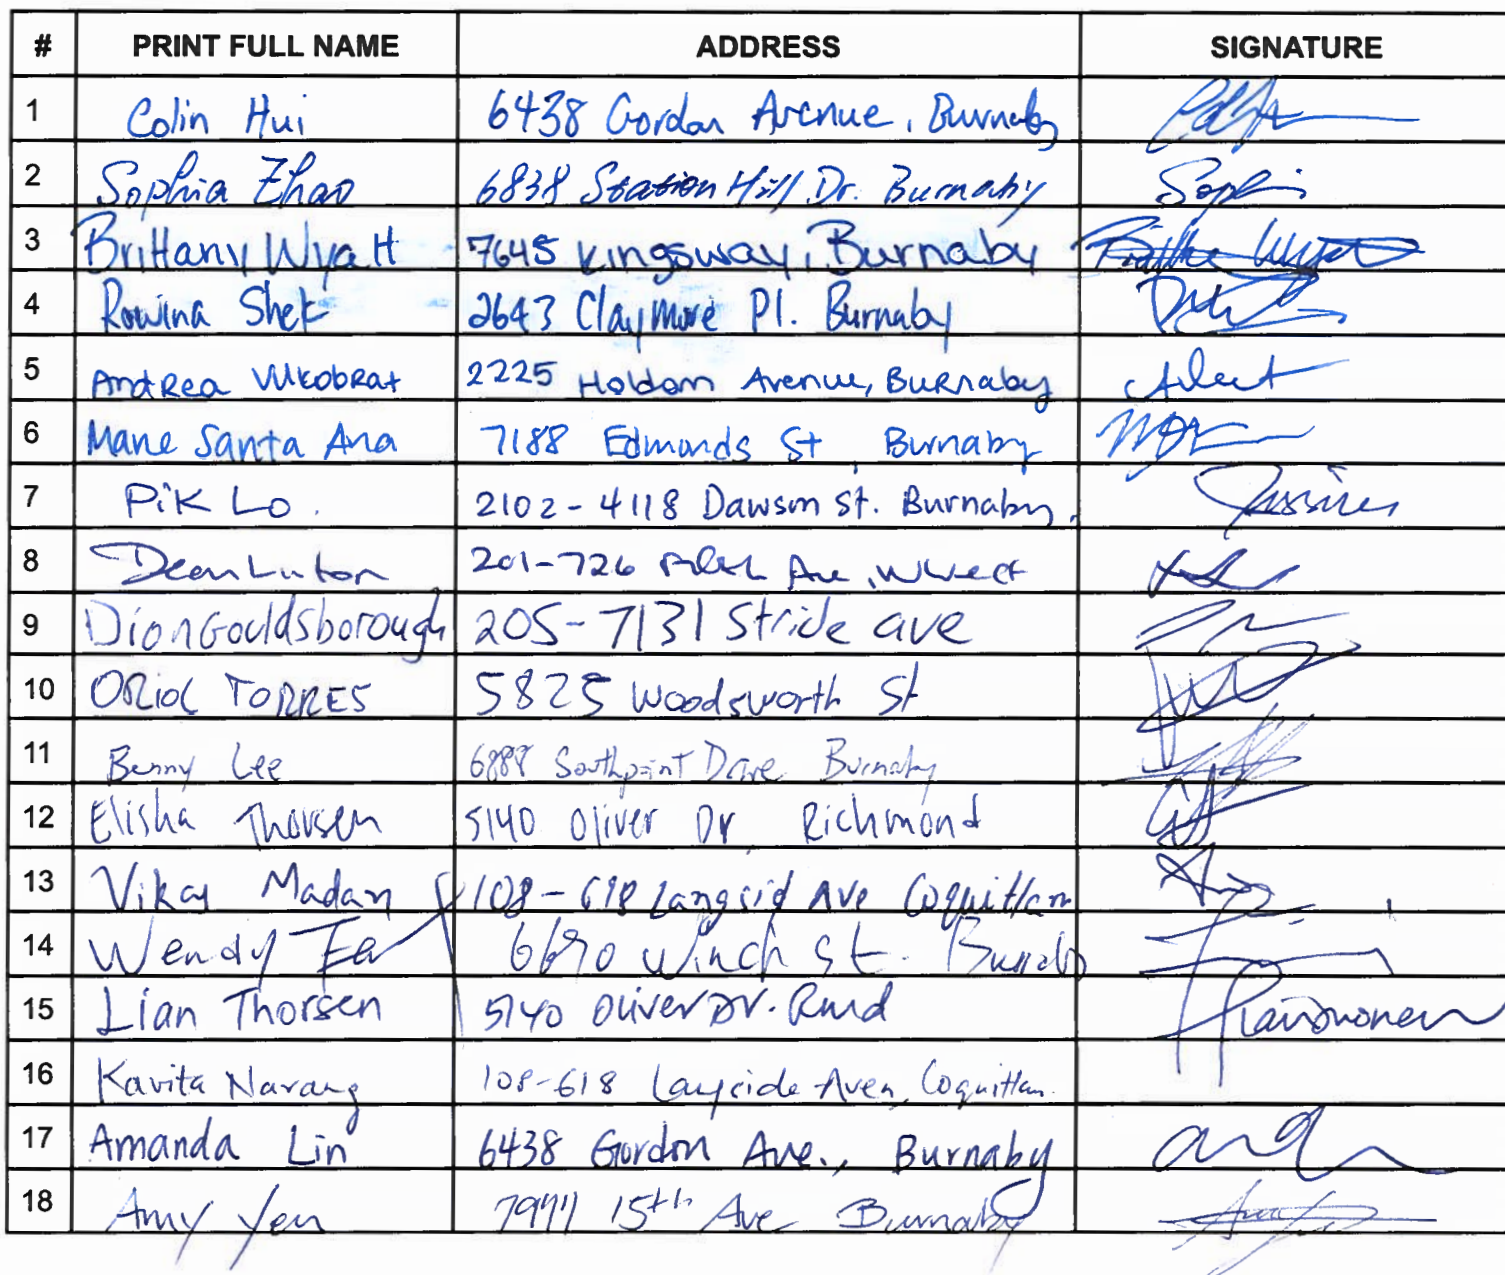 # PRINT FULL NAME ADDRESS SIGNATURE
1 Colin Hui 6438 Gordon Avenue, Burnaby
2 Sophia Zhao 6838 Station Hill Dr. Burnaby Sophi
3 Brittany Wyatt 7645 Kingsway, Burnaby
4 Rowina Shek 2643 Claymore Pl. Burnaby
5 Andrea Vukobrat 2225 Holdom Avenue, Burnaby
6 Marie Santa Ana 7188 Edmonds St Burnaby
7 Pik Lo. 2102-4118 Dawson St. Burnaby.
8 Dean Luton 201-726 Ave,
9 Dion Gouldsborough 205-7131 Stride ave
10 ORiol TORRES 5825 Woodsworth St
11 Benny Lee 6888 Southpoint Drive Burnaby
12 Elisha Thorsen 5140 Oliver Dr Richmond
13 Vikas Madan 108-618 Langsid Ave Coquitlam
14 Wendy 6690 Winch St. Burnaby
15 Lian Thorsen 5140 Oliver Dr. Rmd
16 Kavita Narang 108-618 Langside Aven, Coquitlam.
17 Amanda Lin 6438 Gordon Ave., Burnaby
18 Amy Yen 15th Ave Burnaby